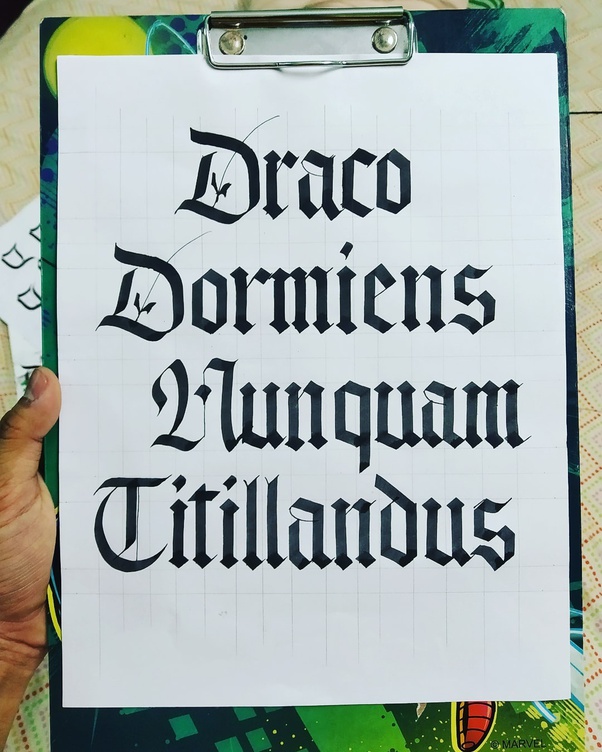 Draco
Dormiens
Nunquam
Titillandus
© MARVEL